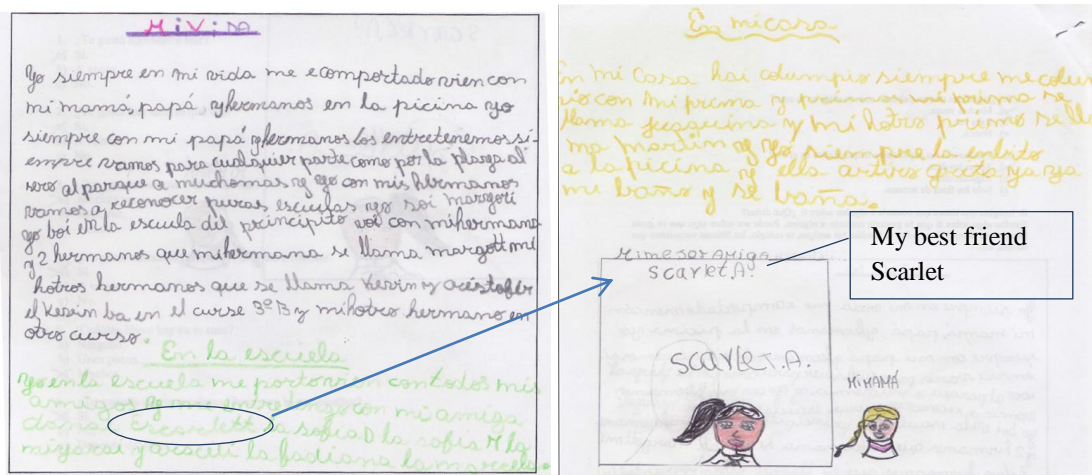 Mi ViDA
Yo siempre en mi vida me e comportado vien con
mi mamá, papá y hermanos en la picina yo
siempre con mi papá y hermanos los entretenemos si-
empre vamos para cualquier parte como por la plaza al
sero al parque a muchomas y yo con mis hermanos
vamos a reconocer puras escuelas yo soi margori
yo boi en la escuela del principito voi con mihermana
y 2 hermanos que mihermana se llama margott mi
hotros hermanos que se llama Kevin y cristofer
el Kevin ba en el curse 3º B y mihotro hermano en
otro curso.
En la escuela
Yo en la escuela me porto vien con todos mis
amigos y me entretengo con mi amiga
escarlett la sofia D la sofia M la
la fadiana la marcela.
En micasa
En mi casa hai columpio siempre me colum
pio con mi prima y primos mi prima se
llama y mi hotro primo se lla
ma martin y yo siempre la enbito
a la picina y ella grita ya ya
me baño y se baña.
My best friend
Scarlet
Mimejor AMiga
scarlet.A.
scarleT.A.
MiMAMÁ